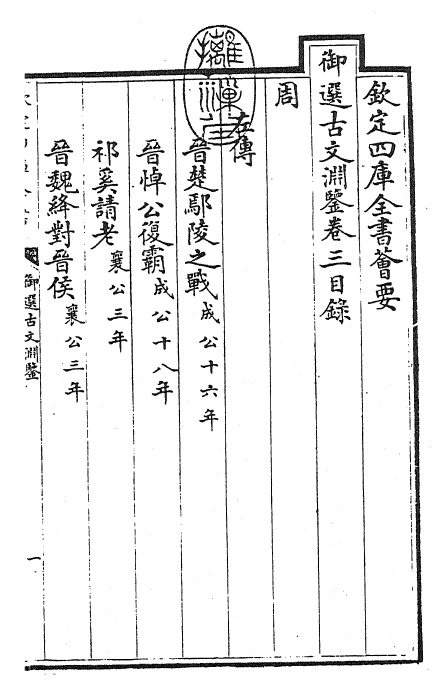 欽定四庫全書薈要
御選古文淵鑒卷三目錄
周
左傳
晉楚鄢陵之戰成公十六年
晉悼公復霸成公十八年
祁奚請老襄公三年
晉魏絳對晉侯襄公三年
御選古文淵鑒
一